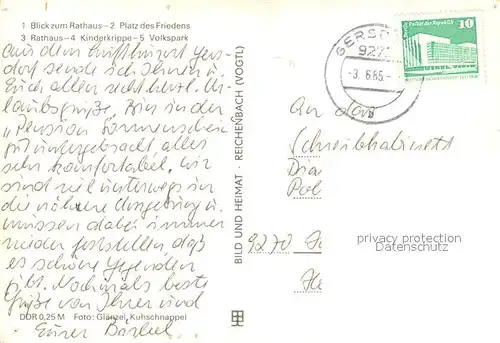 1 Blick zum Rathaus–2 Platz des Friedens
3 Rathaus–4 Kinderkrippe–5 Volkspark
Aus dem Luftkurort Gers-
dorf sende ich Ihnen u.
Euch allen recht herzl. Ur-
laubsgrüße. Bin in der
"Pension Sonnenschein"
gut untergebracht, alles
sehr komfortabel. Wir
sind viel unterwegs in
die nähere Umgebung u.
müssen dabei immer
wieder feststellen daß
es schöne Gegenden
gibt. Nochmals beste
Grüße von Ihrer und
Eurer Bärbel
DDR 0,25 M Foto: Glänzel, Kuhschnappel
BILD UND HEIMAT · REICHENBACH (VOGTL)
GERSD
927
-3.6.85-
Palast der Republik
10
DDR
An das
Schreibkabinett
9270
privacy protection
Datenschutz